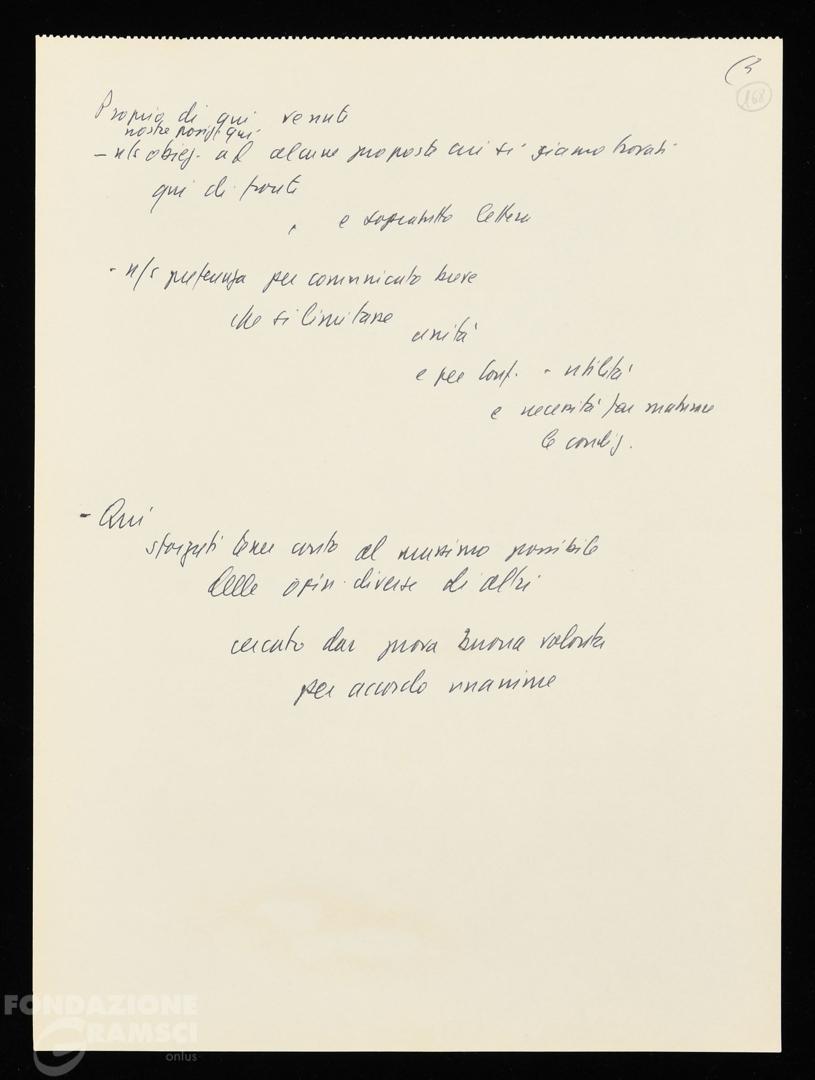 (3
168
Proprio di qui venute
nostre posiz. qui
- n/s obiez. ad alcune proposte cui si siamo trovati
qui di fronte
e soprattutto lettera
- n/s preferenza per comunicato breve
che si limitasse
unità
e per Conf. - utilità
e necessità far maturare
le condiz.
- Qui
sforzati tener conto al massimo possibile
delle opin. diverse di altri
cercato dar prova buona volontà
per accordo unanime
FONDAZIONE
GRAMSCI
onlus